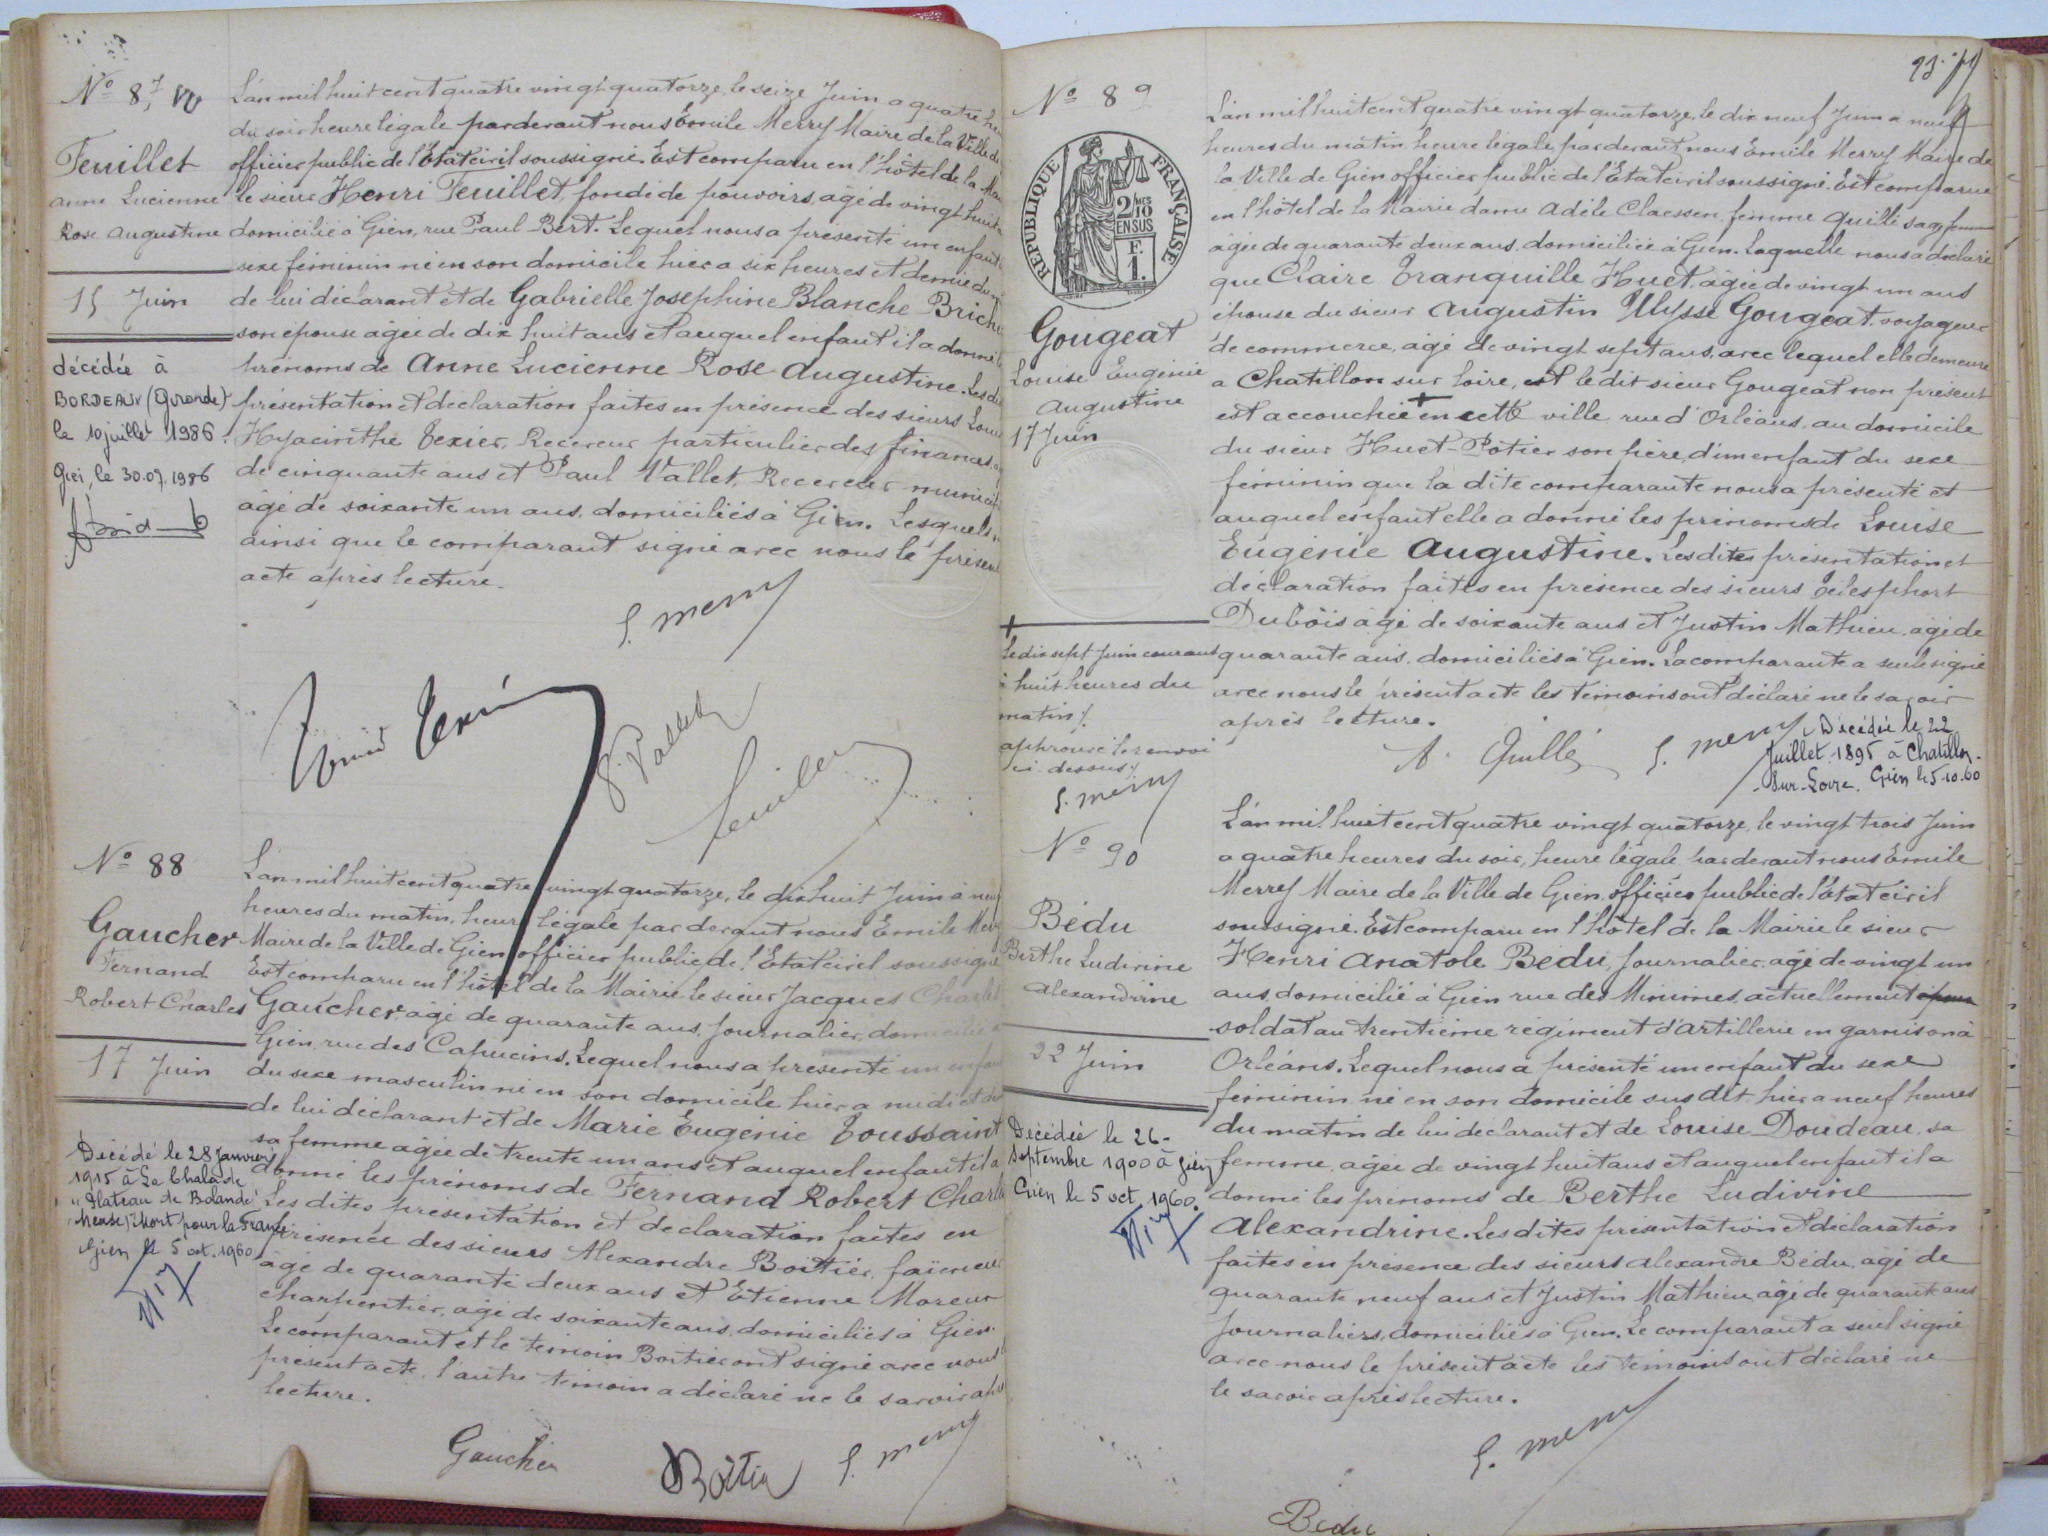 Nº 87
Feuillet
Anne Lucienne
Rose Augustine
15 Juin
décédée à
BORDEAUX (Gironde)
le 10 juillet 1986.
Gien, le 30.07.1986
L'an mil huit cent quatre vingt quatorze, le seize Juin a quatre heu
du soir heure légale pardevant nous Emile Merry Maire de la Ville de
officier public de l'Etat civil soussigné. Est comparu en l'hôtel de la Mai
le sieur Henri Feuillet, fondé de pouvoirs, agé de vingt huit
domicilié à Gien, rue Paul Bert. Lequel nous a présenté un enfant
sexe féminin né en son domicile hier a six heures et demie du
de lui déclarant et de Gabrielle Josephine Blanche Briche
son épouse agée de dix huit ans et auquel enfant il a donné
prénoms de Anne Lucienne Rose Augustine. Les di
présentation et déclaration faites en présence des sieurs Loui
Hyacinthe Texier, Receveur particulier des finances,
de cinquante ans et Paul Vallet, Receveur munici
agé de soixante un ans, domiciliés à Gien. Lesquels
ainsi que le comparant signé avec nous le présen
acte après lecture.
E. Merry
Texier
Feuillet
Nº 88
Gaucher
Fernand
Robert Charles
17 Juin
Décédé le 28 Janvier
1915 à La Chalade
"Plateau de Bolande"
(Meuse) "Mort pour la France"
Gien le 5 oct. 1960
L'an mil huit cent quatre vingt quatorze, le dix huit Juin à neuf
heures du matin, heure légale par devant nous Emile Merry
Maire de la Ville de Gien officier public de l'Etat civil soussigné
Est comparu en l'hôtel de la Mairie le sieur Jacques Charles
Gaucher, agé de quarante ans, Journalier, domicilié a
Gien, rue des Capucins. Lequel nous a présenté un enfan
du sexe masculin né en son domicile hier a midi et de
de lui déclarant et de Marie Eugénie Toussaint
sa femme agée de trente un ans et auquel enfant il a
donné les prénoms de Fernand Robert Charle
Les dites présentation et déclaration faites en
présence des sieurs Alexandre Boitier, faïencier
agé de quarante deux ans et Etienne Moreux
charpentier, agé de soixante ans, domiciliés à Gien.
Le comparant et le témoin Boitier ont signé avec nous
présent acte, l'autre témoin a déclaré ne le savoir aprè
lecture.
Gaucher
Boitier
E. Merry
Nº 89
RÉPUBLIQUE FRANÇAISE
2/10
EN SUS
F.
1.
Gougeat
Louise Eugénie
Augustine
17 Juin
le dix sept Juin courant
à huit heures du
matin /.
approuvé le renvoi
ci-dessus /
E. Merry
L'an mil huit cent quatre vingt quatorze, le dix neuf Juin à neuf
heures du matin, heure légale pardevant nous Emile Merry Maire de
la Ville de Gien officier public de l'Etat civil soussigné. Est comparue
en l'hôtel de la Mairie dame Adèle Claessen, femme Quillé sage femme
agée de quarante deux ans, domiciliée à Gien. Laquelle nous a déclaré
que Claire Tranquille Huet, agée de vingt un ans
épouse du sieur Augustin Ulysse Gougeat, voyageur
de commerce, agé de vingt sept ans, avec lequel elle demeure
a Chatillon sur Loire, et le dit sieur Gougeat non présent
est accouchée + en cette ville rue d'Orléans, au domicile
du sieur Huet-Potier son père, d'un enfant du sexe
féminin que la dite comparante nous a présenté et
auquel enfant elle a donné les prénoms de Louise
Eugénie Augustine. Les dites présentation et
déclaration faites en présence des sieurs Télesphort
Dubois agé de soixante ans et Justin Mathieu, agé de
quarante ans, domiciliés à Gien. La comparante a seule signé
avec nous le présent acte les témoins ont déclaré ne le savoir
après lecture.
A. Quillé
E. Merry
Décédée le 22
Juillet 1895 à Chatillon-
-sur-Loire. Gien le 5-10-60
Nº 90
Bédu
Berthe Ludivine
Alexandrine
22 Juin
Décédée le 26-
Septembre 1900 à Gien
Gien le 5 oct. 1960.
L'an mil huit cent quatre vingt quatorze, le vingt trois Juin
a quatre heures du soir, heure légale pardevant nous Emile
Merry Maire de la Ville de Gien, officier public de l'état civil
soussigné. Est comparu en l'hôtel de la Mairie le sieur
Henri Anatole Bédu, Journalier, agé de vingt un
ans, domicilié à Gien rue des Minimes, actuellement
soldat au trentième régiment d'artillerie en garnison à
Orléans. Lequel nous a présenté un enfant du sexe
féminin né en son domicile susdit hier a neuf heures
du matin de lui déclarant et de Louise Doudeau, sa
femme, agée de vingt huit ans et auquel enfant il a
donné les prénoms de Berthe Ludivine
Alexandrine. Les dites présentation et déclaration
faites en présence des sieurs Alexandre Bédu, agé de
quarante neuf ans et Justin Mathieu, agé de quarante ans
Journaliers, domiciliés à Gien. Le comparant a seul signé
avec nous le présent acte les témoins ont déclaré ne
le savoir après lecture.
E. Merry
Bédu